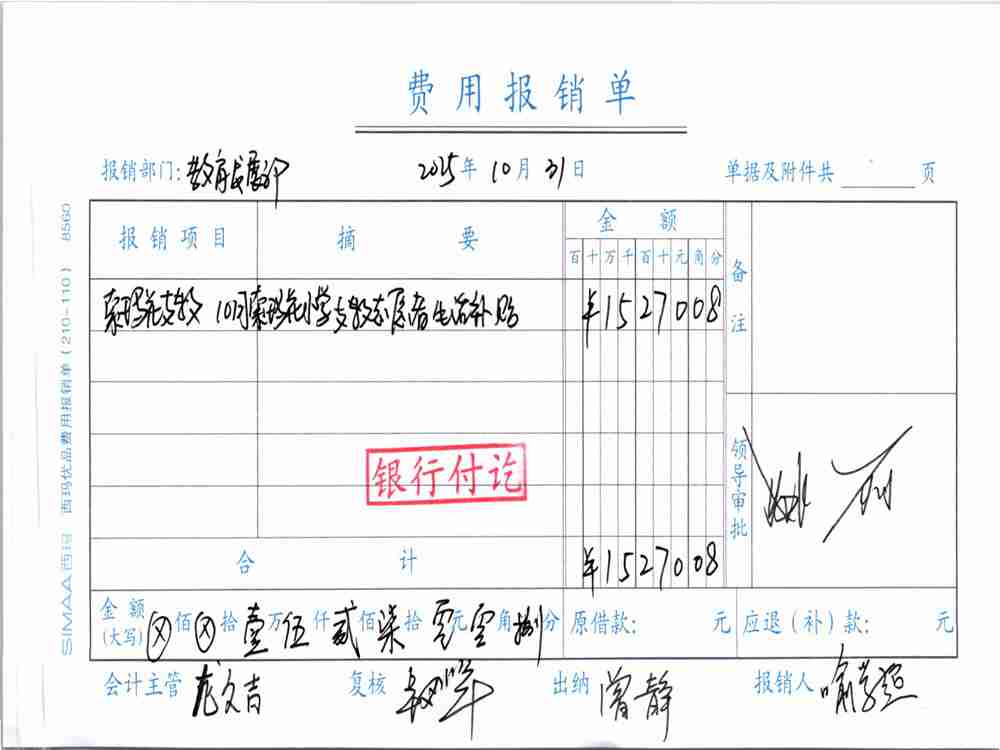 费用报销单
报销部门: 教育发展部 2025年 10月 31日 单据及附件共 页
报销项目 摘要 金额 备注
百 十 万 千 百 十 元 角 分
索玛花支教 10月索玛花小学支教志愿者生活补贴 ¥1527008
银行付讫
领导审批
合计 ¥1527008
金额(大写) ⊗佰⊗拾壹万伍仟贰佰柒拾零元零角捌分 原借款: 元 应退(补)款: 元
会计主管 龙文吉 复核 出纳 曾静 报销人 喻学超
SIMAA西玛 西玛优品费用报销单(210-110) 8560